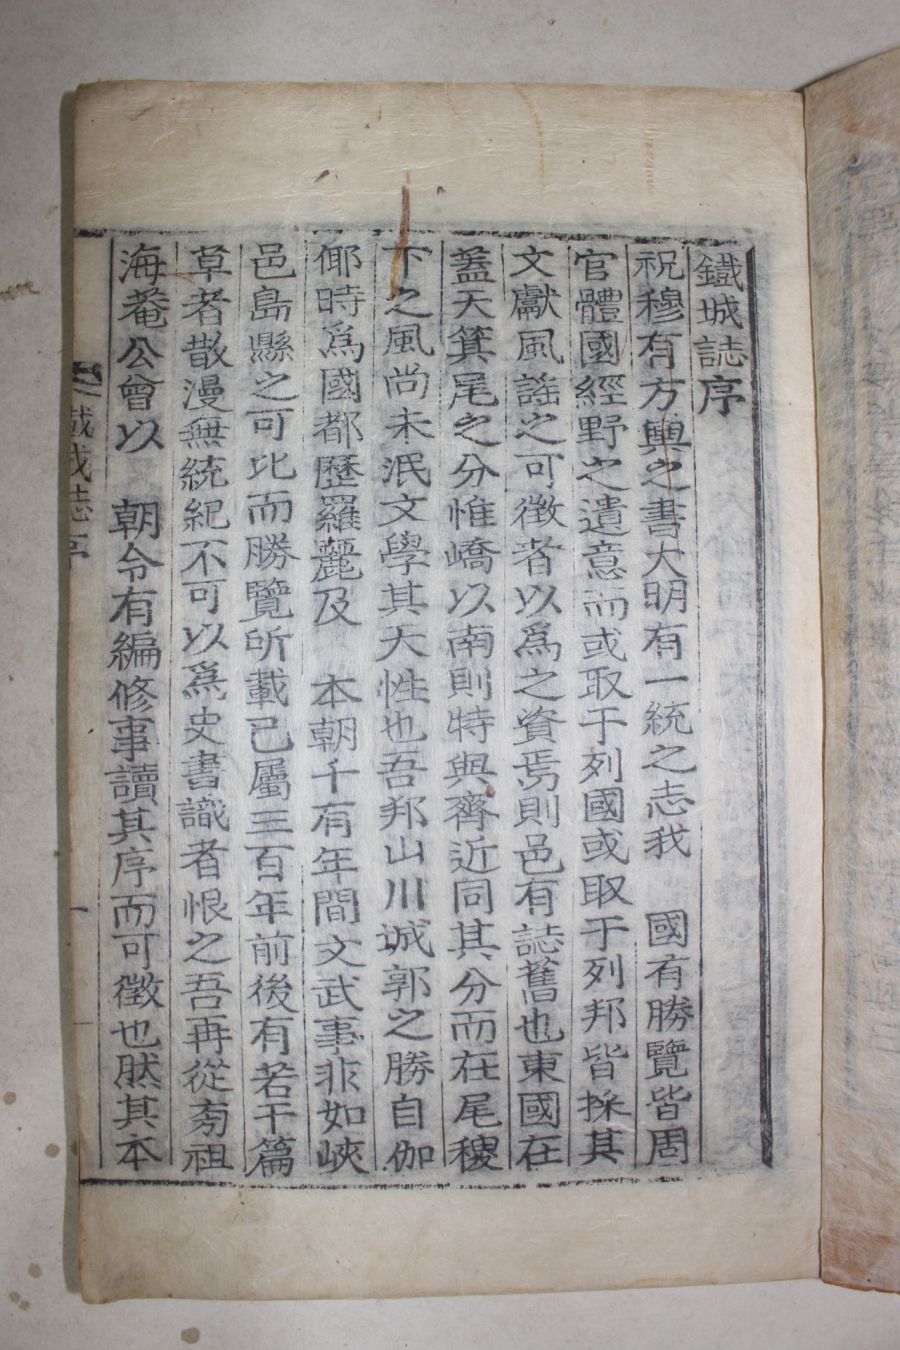 鐵城誌序
祝穆有方輿之書大明有一統之志我　國有勝覽皆周
官體國經野之遺意而或取于列國或取于列邦皆採其
文獻風謠之可徵者以爲之資焉則邑有誌舊也東國在
蓋天箕尾之分惟嶠以南則特與齊近同其分而在尾稷
下之風尚未泯文學其大性也吾邦山川城郭之勝自伽
倻時爲國都歷羅麗及　本朝千有年間文武事非如峽
邑島縣之可比而勝覽所載已屬三百年前後有若干篇
草者散漫無統紀不可以爲史書識者恨之吾再從旁祖
海菴公曾以　朝令有編修事讀其序而可徵也然其本
鐵城誌序
一